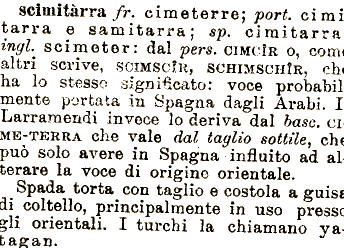 scimitàrra fr. cimeterre; port. cimi
tarra e samitarra; sp. cimitarra
ingl. scimeter: dal pers. CIMCÎR o, come
altri scrive, SCIMSCÎR, SCHIMSCHÎR, che
ha lo stesso significato: voce probabil
mente portata in Spagna dagli Arabi. I
Larramendi invece lo deriva dal basc. CI
ME-TERRA che vale dal taglio sottile, che
può solo avere in Spagna influito ad al
terare la voce di origine orientale.
Spada torta con taglio e costola a guisa
di coltello, principalmente in uso presso
gli orientali. I turchi la chiamano ya
tagan.